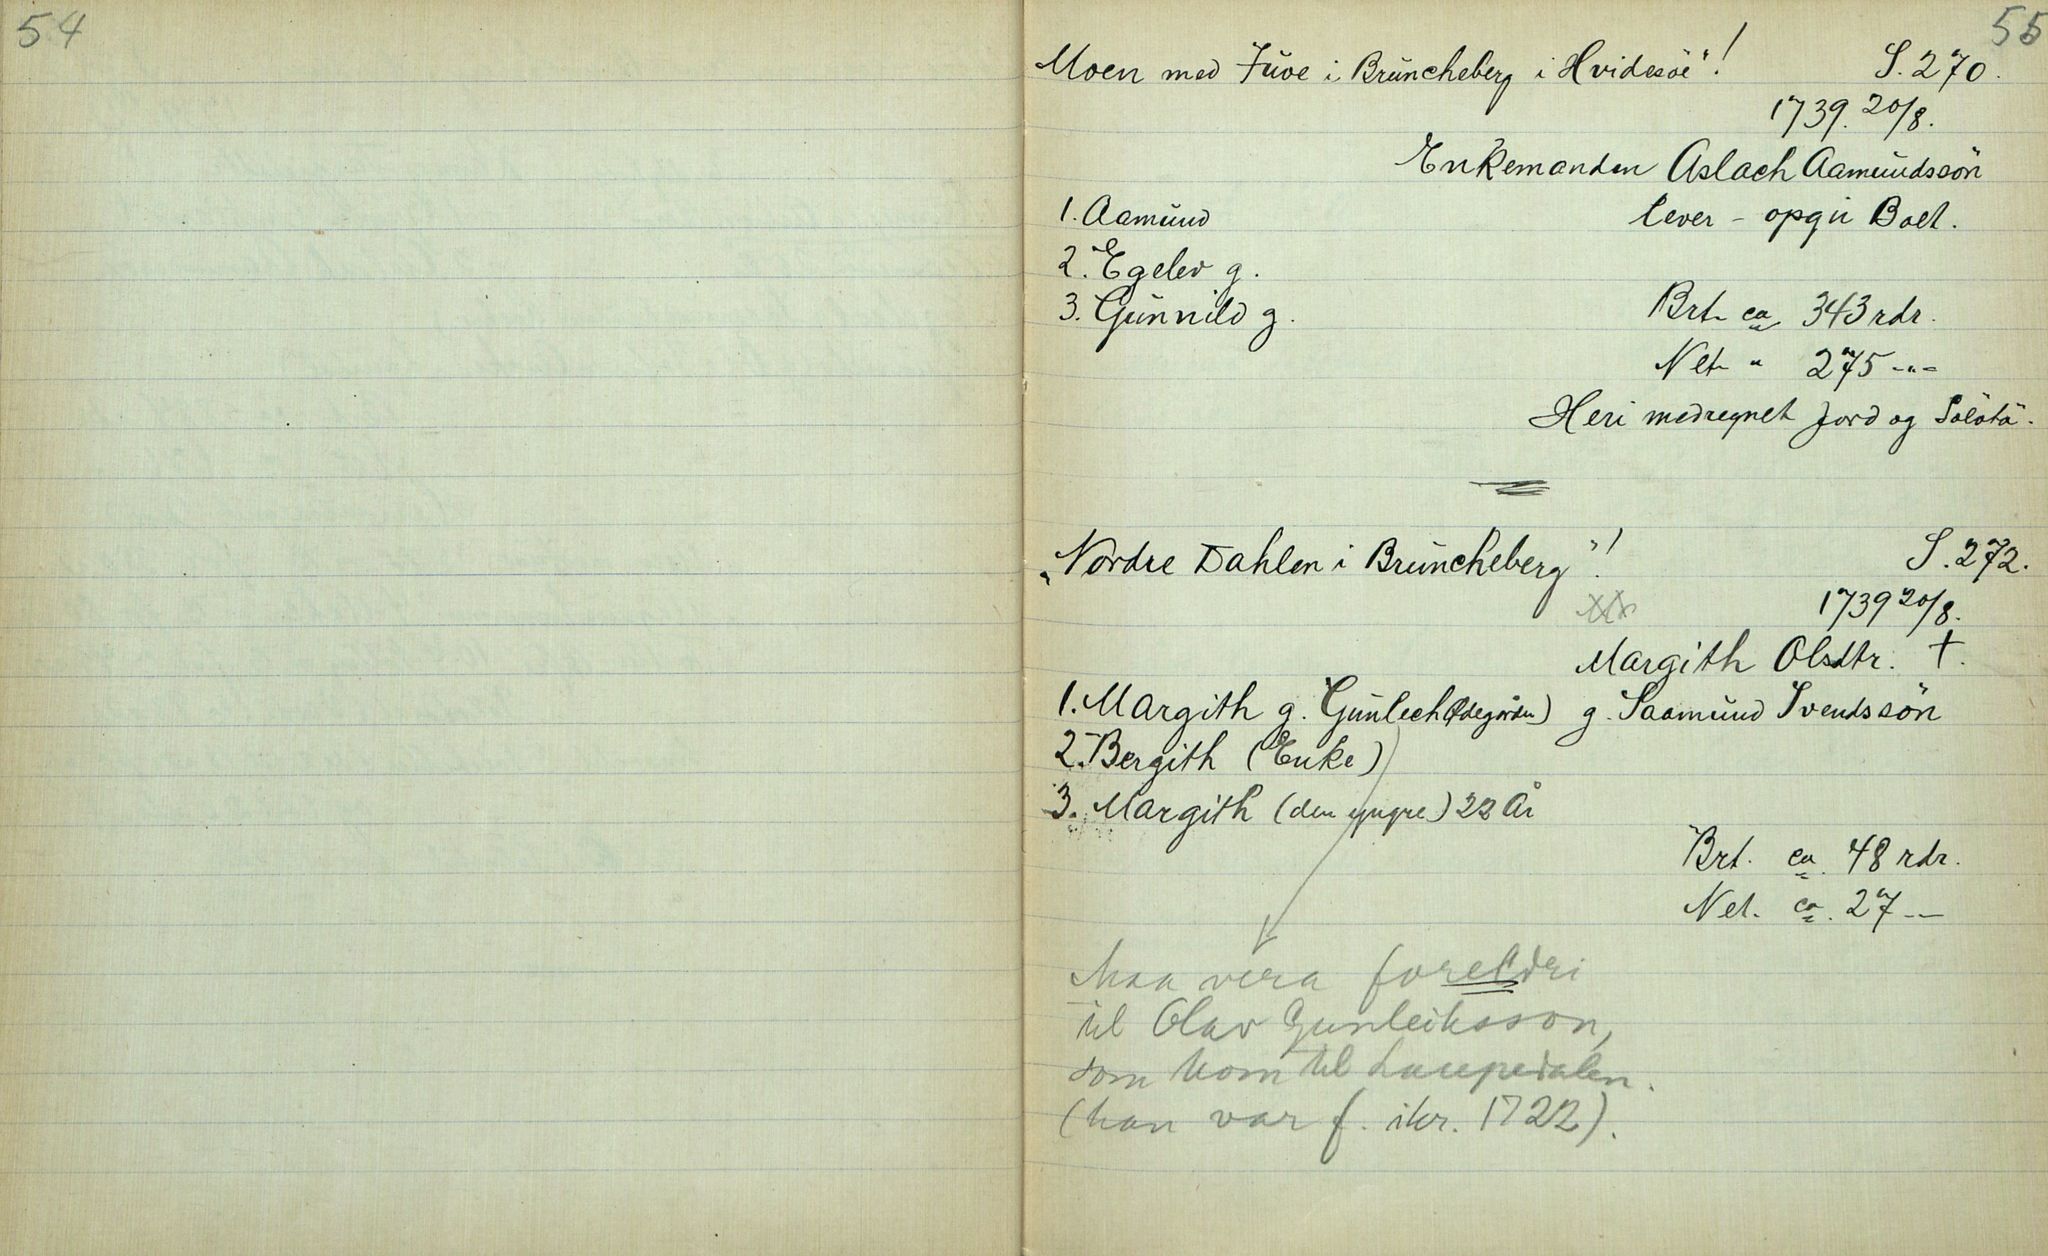 54
55
Moen med Juve i Bruncheberg i Hvidesöe"! S. 270.
1739. 20/8.
Enkemanden Aslach Aamundssön
1. Aamund lever - opgir Boet.
2. Egelev g.
3. Gunnild g. Brt. ca 343 rdr.
Net " 275 -"-
Heri medregnet jord og
"Nordre Dahlen i Bruncheberg"! S. 272.
1739 20/8.
Margith Olsdtr. †.
1. Margith g. Gunlech (Ödegården) g. Saamund Svendssön
2. Bergith (Enke)
3. Margith (den yngre) 22 År
Brt. ca. 48 rdr.
Net. ca. 27 --
Maa vera foreldri
til Olav Gunleiksson,
som kom til Laupedalen.
(han var f. ikr. 1722).